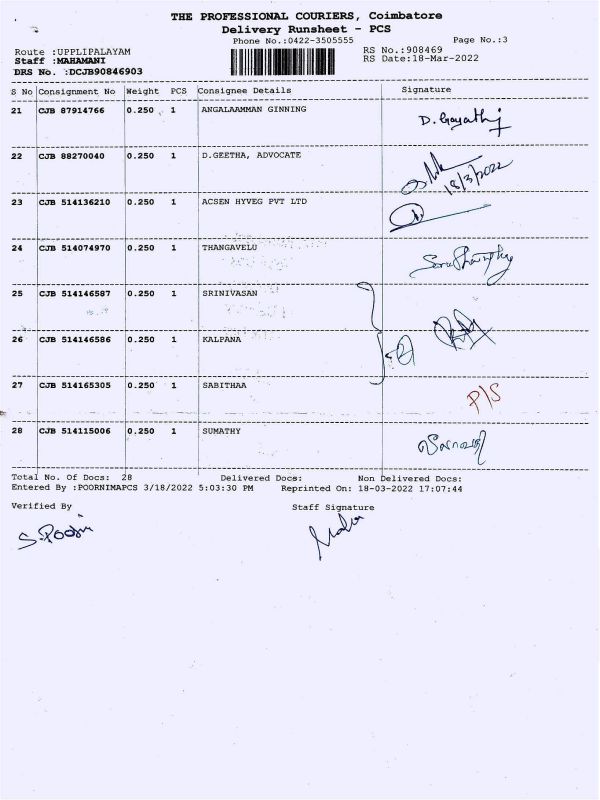 THE PROFESSIONAL COURIERS, Coimbatore
Delivery Runsheet - PCS
Phone No.:0422-3505555 Page No.:3
Route :UPPLIPALAYAM RS No.:908469
Staff :MAHAMANI RS Date:18-Mar-2022
DRS No. :DCJB90846903
S No Consignment No Weight PCS Consignee Details Signature
21 CJB 87914766 0.250 1 ANGALAAMMAN GINNING D. Gayathij
22 CJB 88270040 0.250 1 D.GEETHA, ADVOCATE
18/3/2022
23 CJB 514136210 0.250 1 ACSEN HYVEG PVT LTD
24 CJB 514074970 0.250 1 THANGAVELU
25 CJB 514146587 0.250 1 SRINIVASAN
26 CJB 514146586 0.250 1 KALPANA
27 CJB 514165305 0.250 1 SABITHAA P/S
28 CJB 514115006 0.250 1 SUMATHY
Total No. Of Docs: 28 Delivered Docs: Non Delivered Docs:
Entered By :POORNIMAPCS 3/18/2022 5:03:30 PM Reprinted On: 18-03-2022 17:07:44
Verified By Staff Signature
S.Poorni Maha